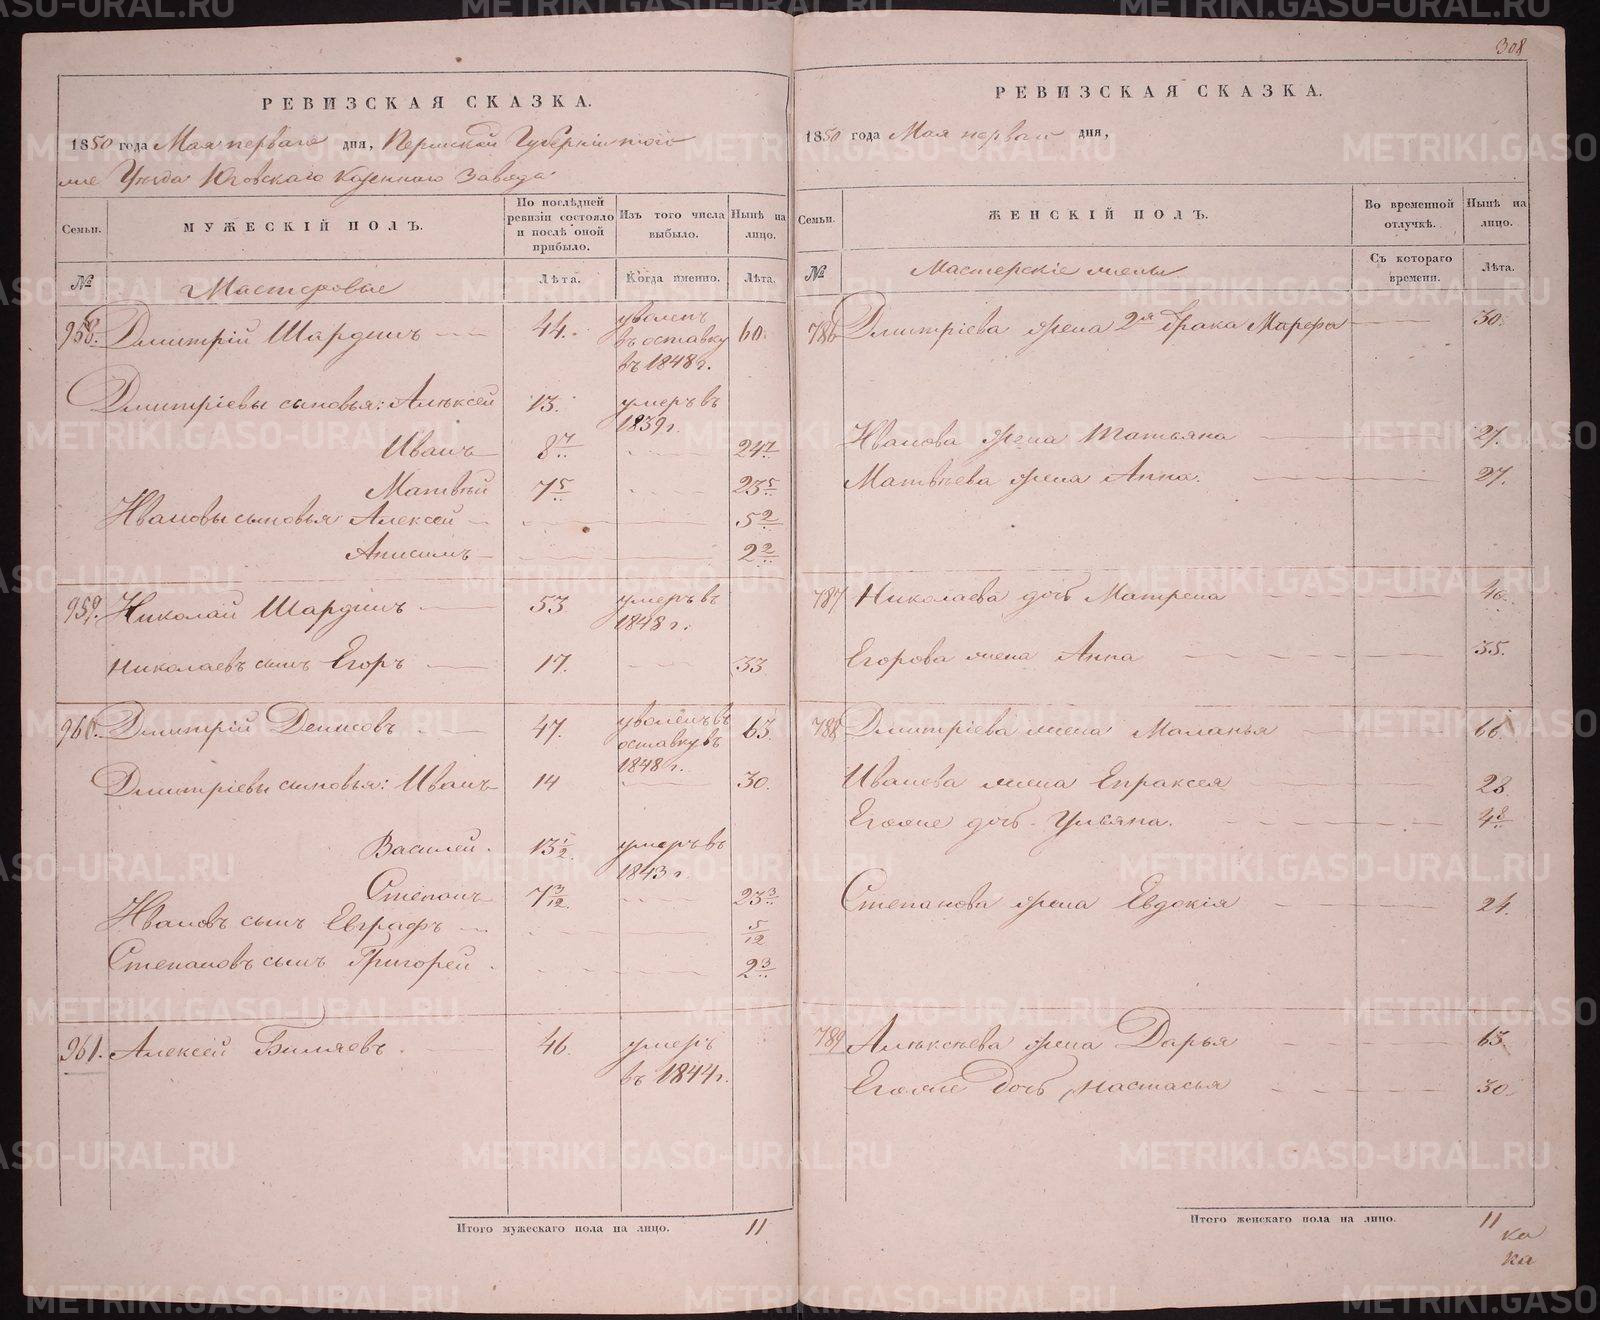 308
РЕВИЗСКАЯ СКАЗКА.
1850 года Мая перваго дня, Пермской Губерніи тогоже
Уѣзда Юговскаго Казеннаго Завода
Семьи. МУЖЕСКІЙ ПОЛЪ. По послѣдней ревизіи состояло и послѣ оной прибыло. Изъ того числа выбыло. Нынѣ на лицо.
№ Мастеровые Лѣта. Когда именно. Лѣта.
958. Дмитрій Шардинъ 44. уволенъ въ оставку въ 1848 г. 60.
Дмитріевы сыновья: Алексѣй 13. умеръ въ 1839 г.
Иванъ 8 7/.. 24 7/..
Матвѣй 7 5/.. 23 5/..
Ивановы сыновья Алексѣй 5 2/..
Анисимъ 2 2/..
959. Николай Шардинъ 53 умеръ въ 1848 г.
Николаевъ сынъ Егоръ 17. 33
960. Дмитрій Денисовъ 47. уволенъ въ оставку въ 1848 г. 63
Дмитріевы сыновья: Иванъ 14 30.
Василей. 13 1/2 умеръ въ 1843 г.
Степанъ 7 3/12 23 3/..
Ивановъ сынъ Евграфъ 5/12
Степановъ сынъ Григорей 2 3/..
961. Алексѣй Биляевъ. 46. умеръ въ 1844 г.
Итого мужескаго пола на лицо. 11
РЕВИЗСКАЯ СКАЗКА.
1850 года Мая перваго дня,
Семьи. ЖЕНСКІЙ ПОЛЪ. Во временной отлучкѣ. Нынѣ на лицо.
№ Мастерскіе жены Съ котораго времени. Лѣта.
786 Дмитріева жена 2я брака Марфа 30.
Иванова жена Татьяна 27.
Матвѣева жена Анна. 27.
787 Николаева дочь Матрена 40.
Егорова жена Анна 35.
788 Дмитріева жена Маланья 66.
Иванова жена Епраксея 28
Егоже дочь Ульяна. 4 8/..
Степанова жена Евдокія 24.
789 Алексѣева жена Дарья 63.
Егоже дочь Настасья 30.
Итого женскаго пола на лицо. 11
ка
ка
METRIKI.GASO-URAL.RU